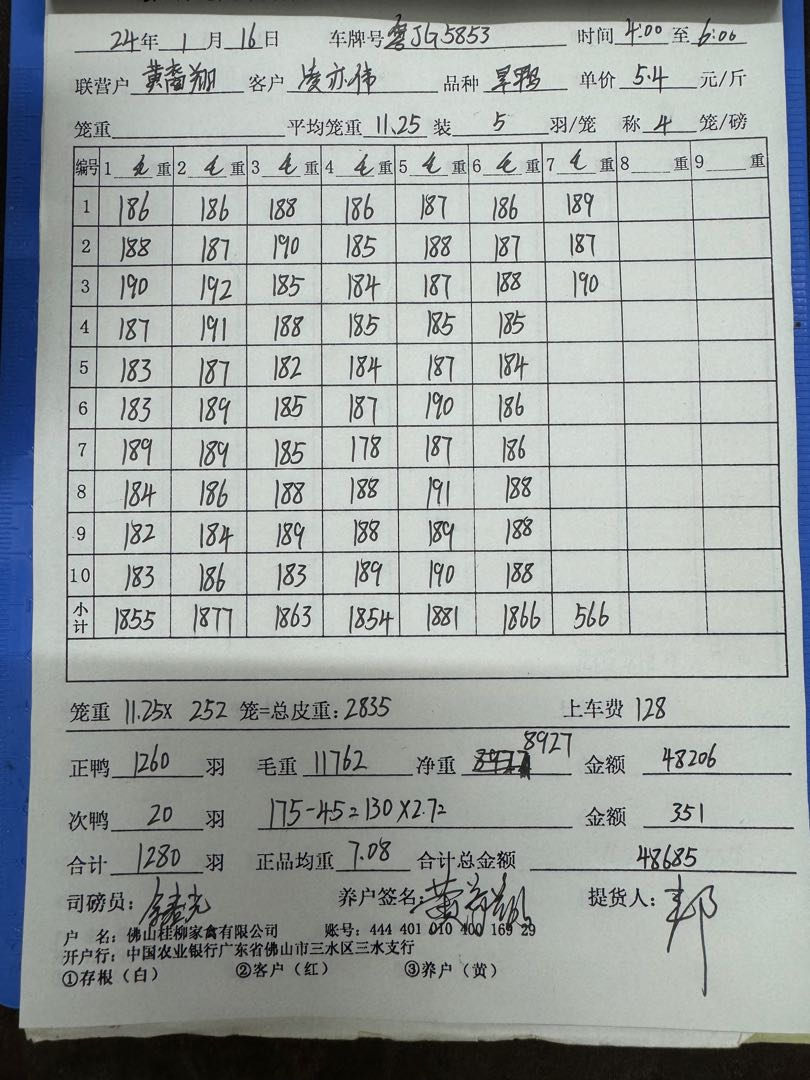 24年 1 月 16 日 车牌号 粤JG5853 时间 4:00 至 6:00
联营户 黄睿翔 客户 凌亦伟 品种 旱鸭 单价 5.4 元/斤
笼重 平均笼重 11.25 装 5 羽/笼 称 4 笼/磅
编号 1 毛 重 2 毛 重 3 毛 重 4 毛 重 5 毛 重 6 毛 重 7 毛 重 8 重 9 重
1 186 186 188 186 187 186 189
2 188 187 190 185 188 187 187
3 190 192 185 184 187 188 190
4 187 191 188 185 185 185
5 183 187 182 184 187 184
6 183 189 185 187 190 186
7 189 189 185 178 187 186
8 184 186 188 188 191 188
9 182 184 189 188 189 188
10 183 186 183 189 190 188
小计 1855 1877 1863 1854 1881 1866 566
笼重 11.25X 252 笼=总皮重:2835 上车费 128
正鸭 1260 羽 毛重 11762 净重 8927 金额 48206
次鸭 20 羽 175-45=130X2.72 金额 351
合计 1280 羽 正品均重 7.08 合计总金额 48685
司磅员: 养户签名: 黄睿翔 提货人: 邦
户 名: 佛山桂柳家禽有限公司 账号: 444 401 010 400 169 29
开户行: 中国农业银行广东省佛山市三水区三水支行
①存根(白) ②客户(红) ③养户(黄)